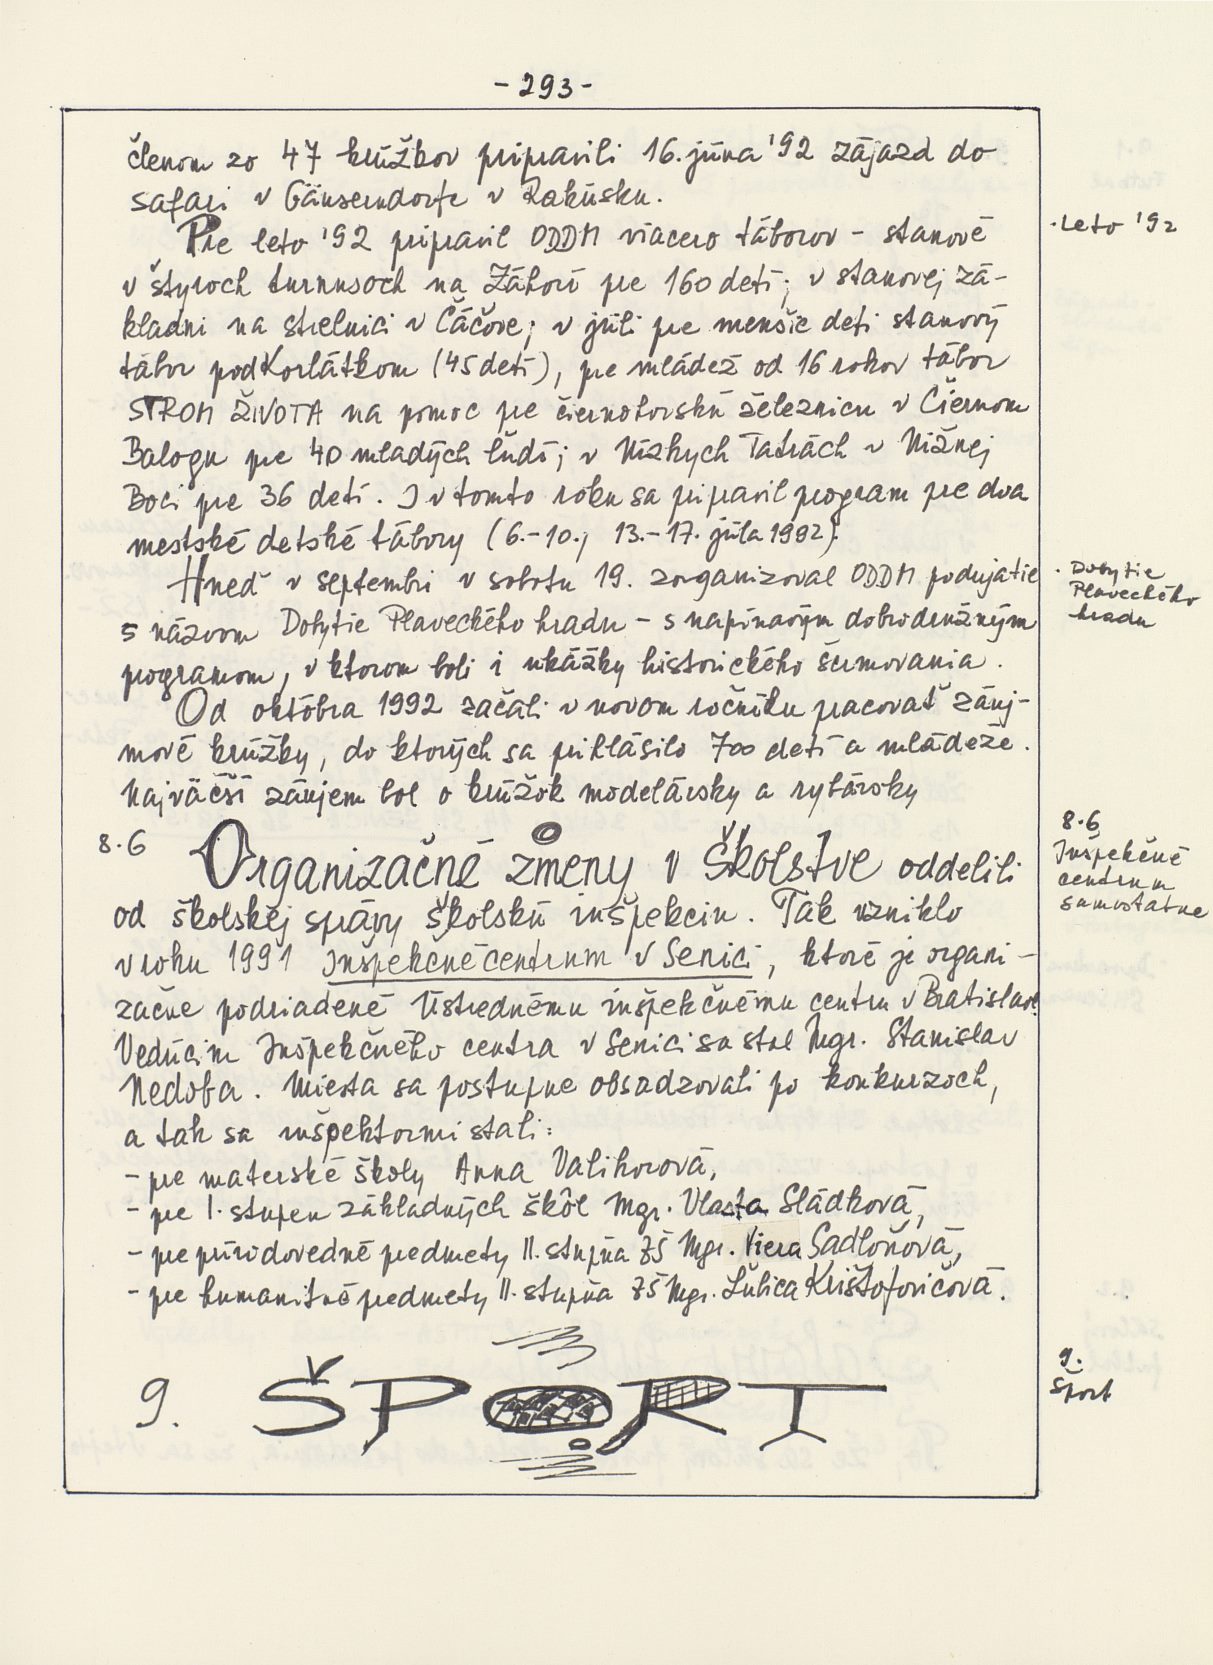 - 293 -
členom zo 47 krúžkov pripravili 16. júna '92 zájazd do
safari v Gänserndorfe v Rakúsku.
Pre leto '92 pripravil ODDM viacero táborov - stanové
· Leto '92
v štyroch turnusoch na Záhorí pre 160 detí; v stanovej zá-
kladni na strelnici v Čáčove; v júli pre menšie deti stanový
tábor pod Korlátkom (45 detí), pre mládež od 16 rokov tábor
STROM ŽIVOTA na pomoc pre čiernohorskú železnicu v Čiernom
Balogu pre 40 mladých ľudí; v Nízkych Tatrách v Nižnej
Boci pre 36 detí. I v tomto roku sa pripravil program pre dva
mestské detské tábory (6.-10., 13.-17. júla 1992).
Hneď v septembri v sobotu 19. zorganizoval ODDM podujatie
· Dobytie
Plaveckého
hradu
s názvom Dobytie Plaveckého hradu - s napínavým dobrodružným
programom, v ktorom boli i ukážky historického šermovania.
Od októbra 1992 začali v novom ročníku pracovať záuj-
mové krúžky, do ktorých sa prihlásilo 700 detí a mládeže.
Najväčší záujem bol o krúžok modelársky a rybársky
8.6 Organizačné zmeny v školstve oddelili
8.6
Inšpekčné
centrum
samostatne
od školskej správy školskú inšpekciu. Tak vzniklo
v roku 1991 Inšpekčné centrum v Senici, ktoré je organi-
začne podriadené Ústrednému inšpekčnému centru v Bratislave.
Vedúcim Inšpekčného centra v Senici sa stal Mgr. Stanislav
Nedoba. Miesta sa postupne obsadzovali po konkurzoch,
a tak sa inšpektormi stali:
- pre materské školy Anna Valihorová,
- pre I. stupen základných škôl Mgr. Vlasta Sládková,
- pre prírodovedné predmety II. stupňa ZŠ Mgr. Viera Sadloňová,
- pre humanitné predmety II. stupňa ZŠ Mgr. Ľubica Krištofovičová.
9. ŠPORT
9.
Šport